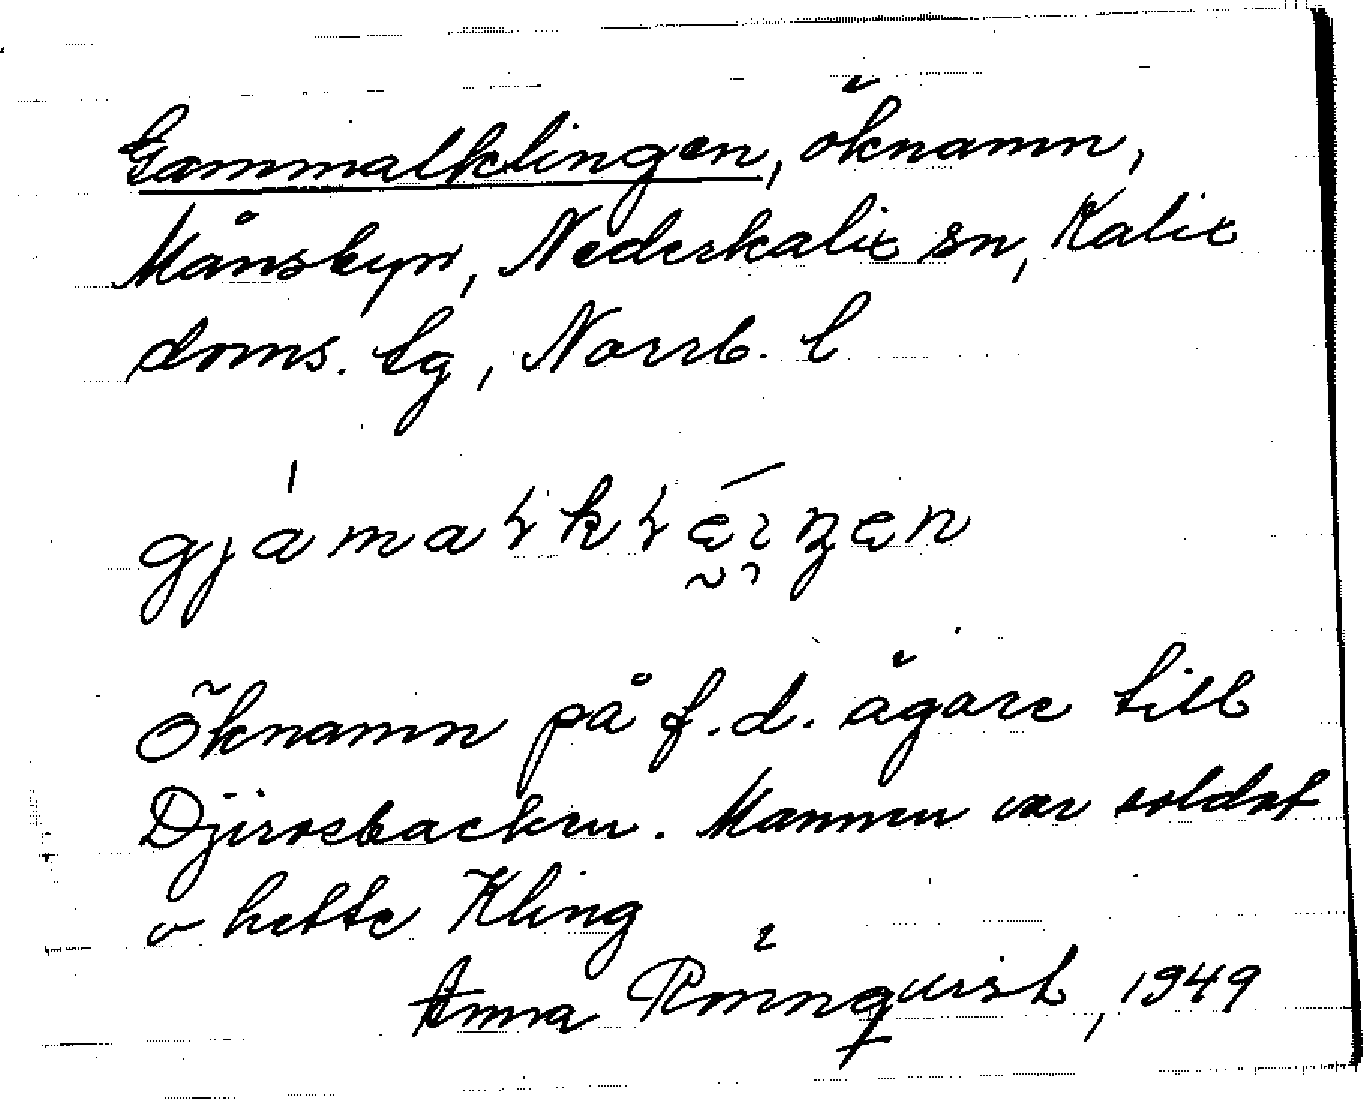 Gammalklingen, öknamn,
Månsbyn, Nederkalix sn, Kalix
doms. tg, Norrb. l
Öknamn på f.d. ägare till
Mannen var soldat
o hette Kling
Anna Rönnqvist, 1949